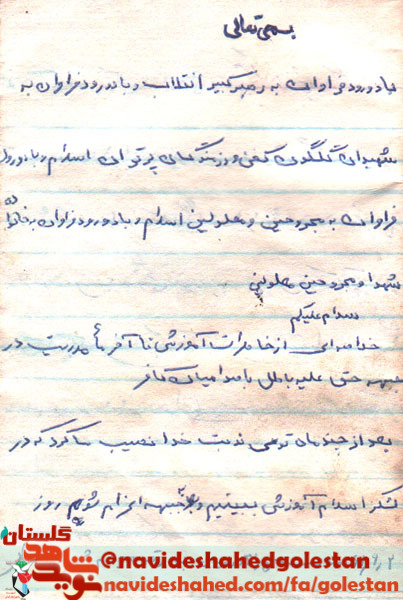 بسمه تعالی
با درود فراوان به رهبر کبیر انقلاب و با درود فراوان به
شهیدان گلگون کفن و رزمندگان پرتوان اسلام و با درود
فراوان به مجروحین و معلولین اسلام و با درود فراوان به خانواده
شهدا و مجروحین معلولین
سلام علیکم
خلاصه‌ای از خاطرات آموزشی تا آخر مأموریت در
جبهه حق علیه باطل با صدامیان کافر
بعد از چند ماه نوبت خدا نصیب ما کرد که در
لشکر اسلام آموزشی ببینیم و به جبهه اعزام شویم روز
گلستان
نوید شاهد
@navideshahedgolestan
navideshahed.com/fa/golestan